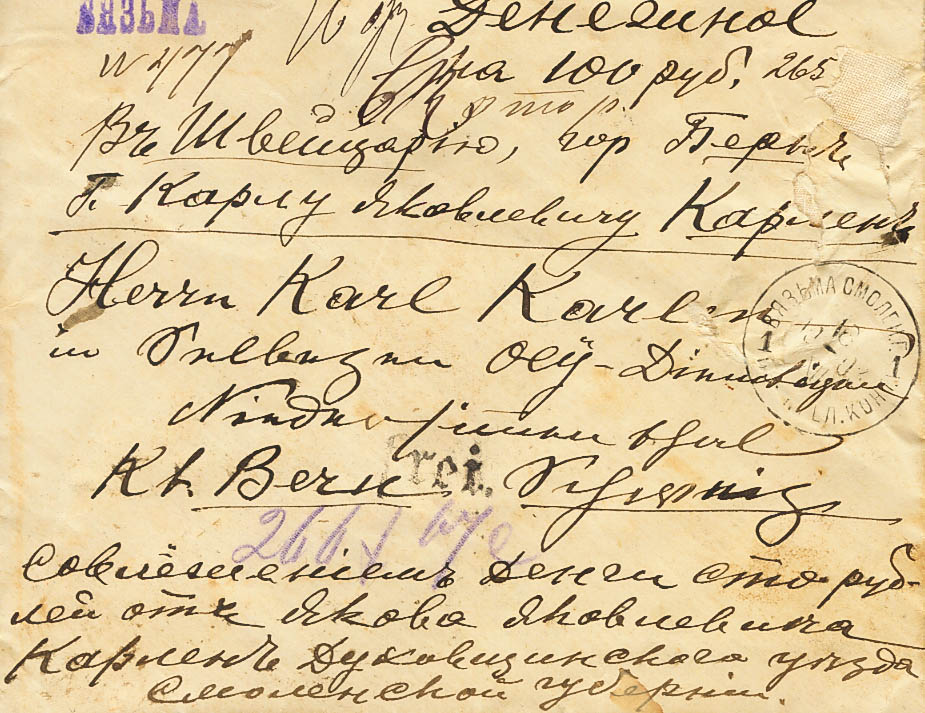 ВЯЗЬМА
N 477 Денежное
На 100 руб. 265
Въ Швейцарію, гор Бернъ
Г. Карлу Яковлевичу Карленъ
Herrn Karl Karlen
ВЯЗЬМА СМОЛЕНС
1 1
in Oey-Diemtigen
Niedersimmenthal
Kt. Bern Schweiz
frei.
266
Совлёженіемъ Денги сто руб-
лей отъ Якова Яковлевича
Карленъ Духовщинского уезда
Смоленской губерніи.